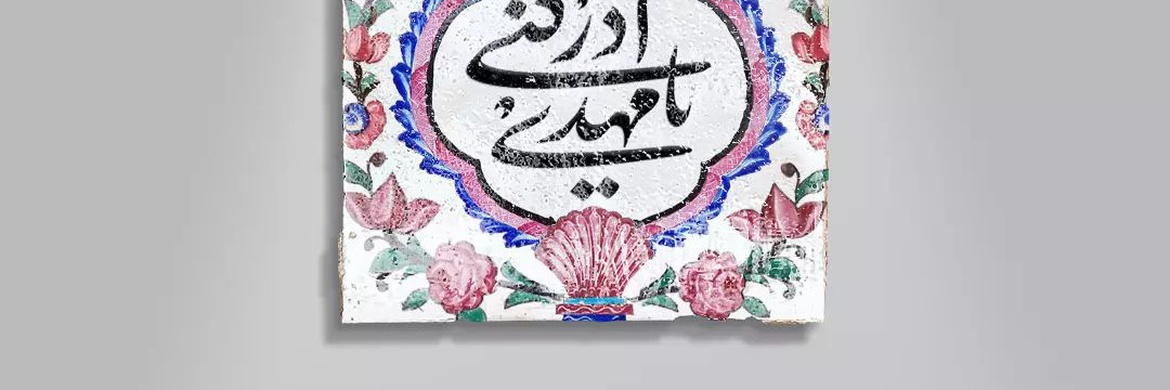 ادرکنی
یا مهدی